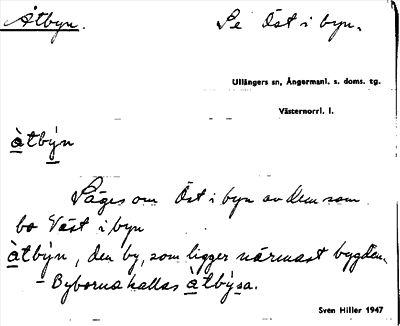 Åtbyn. Se Öst i byn.
Ullångers sn, Ångermanl. s. doms. tg.
Västernorrl. l.
àtbýn
Säges om Öst i byn av dem som
bo Väst i byn
àtbýn, den by, som ligger närmast bygden.
– Byborna kallas àtbýsa.
Sven Hiller 1947